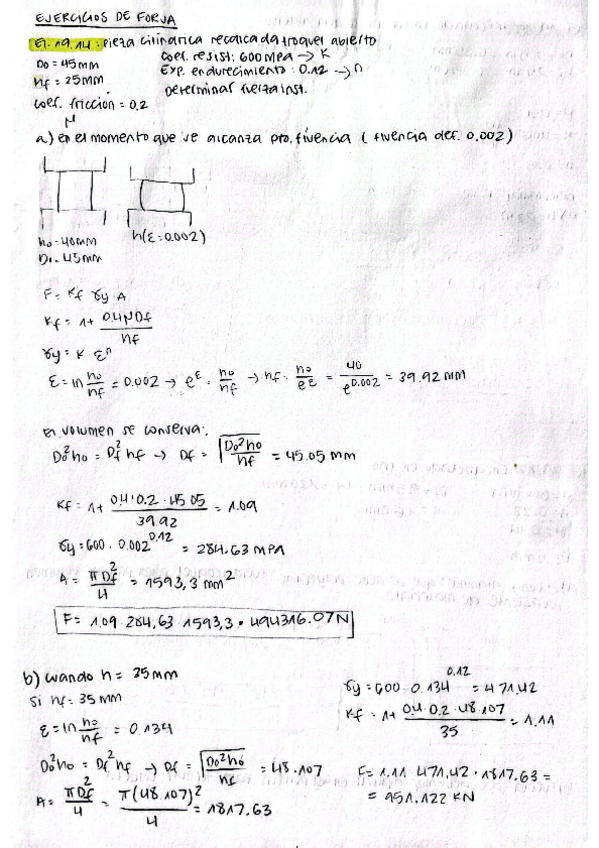 EJERCICIOS DE FORJA
EJ. 19.14: pieza cilindrica recalcada troquel abierto
D0 = 45mm
Coef. resist: 600 MPa → K
Exp. endurecimiento: 0.12 → n
hf = 25mm
Determinar fuerza inst.
coef. friccion = 0.2
μ
a) en el momento que se alcanza pto. fluencia ( fluencia def. 0.002)
h0 = 40mm
D0 = 45mm
h(ε=0.002)
F = Kf σy A
Kf = 1 + 0.4μDf / hf
σy = K εⁿ
ε = ln h0/hf = 0.002 → e^ε = h0/hf → hf = h0/e^ε = 40/e^0.002 = 39.92 mm
El volumen se conserva:
D0²h0 = Df² hf → Df = √(D0²h0/hf) = 45.05 mm
Kf = 1 + 0.4·0.2·45.05 / 39.92 = 1.09
σy = 600 · 0.002^0.12 = 284.63 MPa
A = πDf²/4 = 1593,3 mm²
F = 1.09 · 284,63 · 1593,3 = 494316.07N
b) cuando h = 35mm
Si hf = 35 mm
ε = ln h0/hf = 0.134
D0²h0 = Df² hf → Df = √(D0²h0/hf) = 48.107
A = πDf²/4 = π(48.107)²/4 = 1817.63
σy = 600 · 0.134^0.12 = 471.42
Kf = 1 + 0.4·0.2·48.107 / 35 = 1.11
F = 1.11 · 471,42 · 1817.63 =
= 951.122 KN